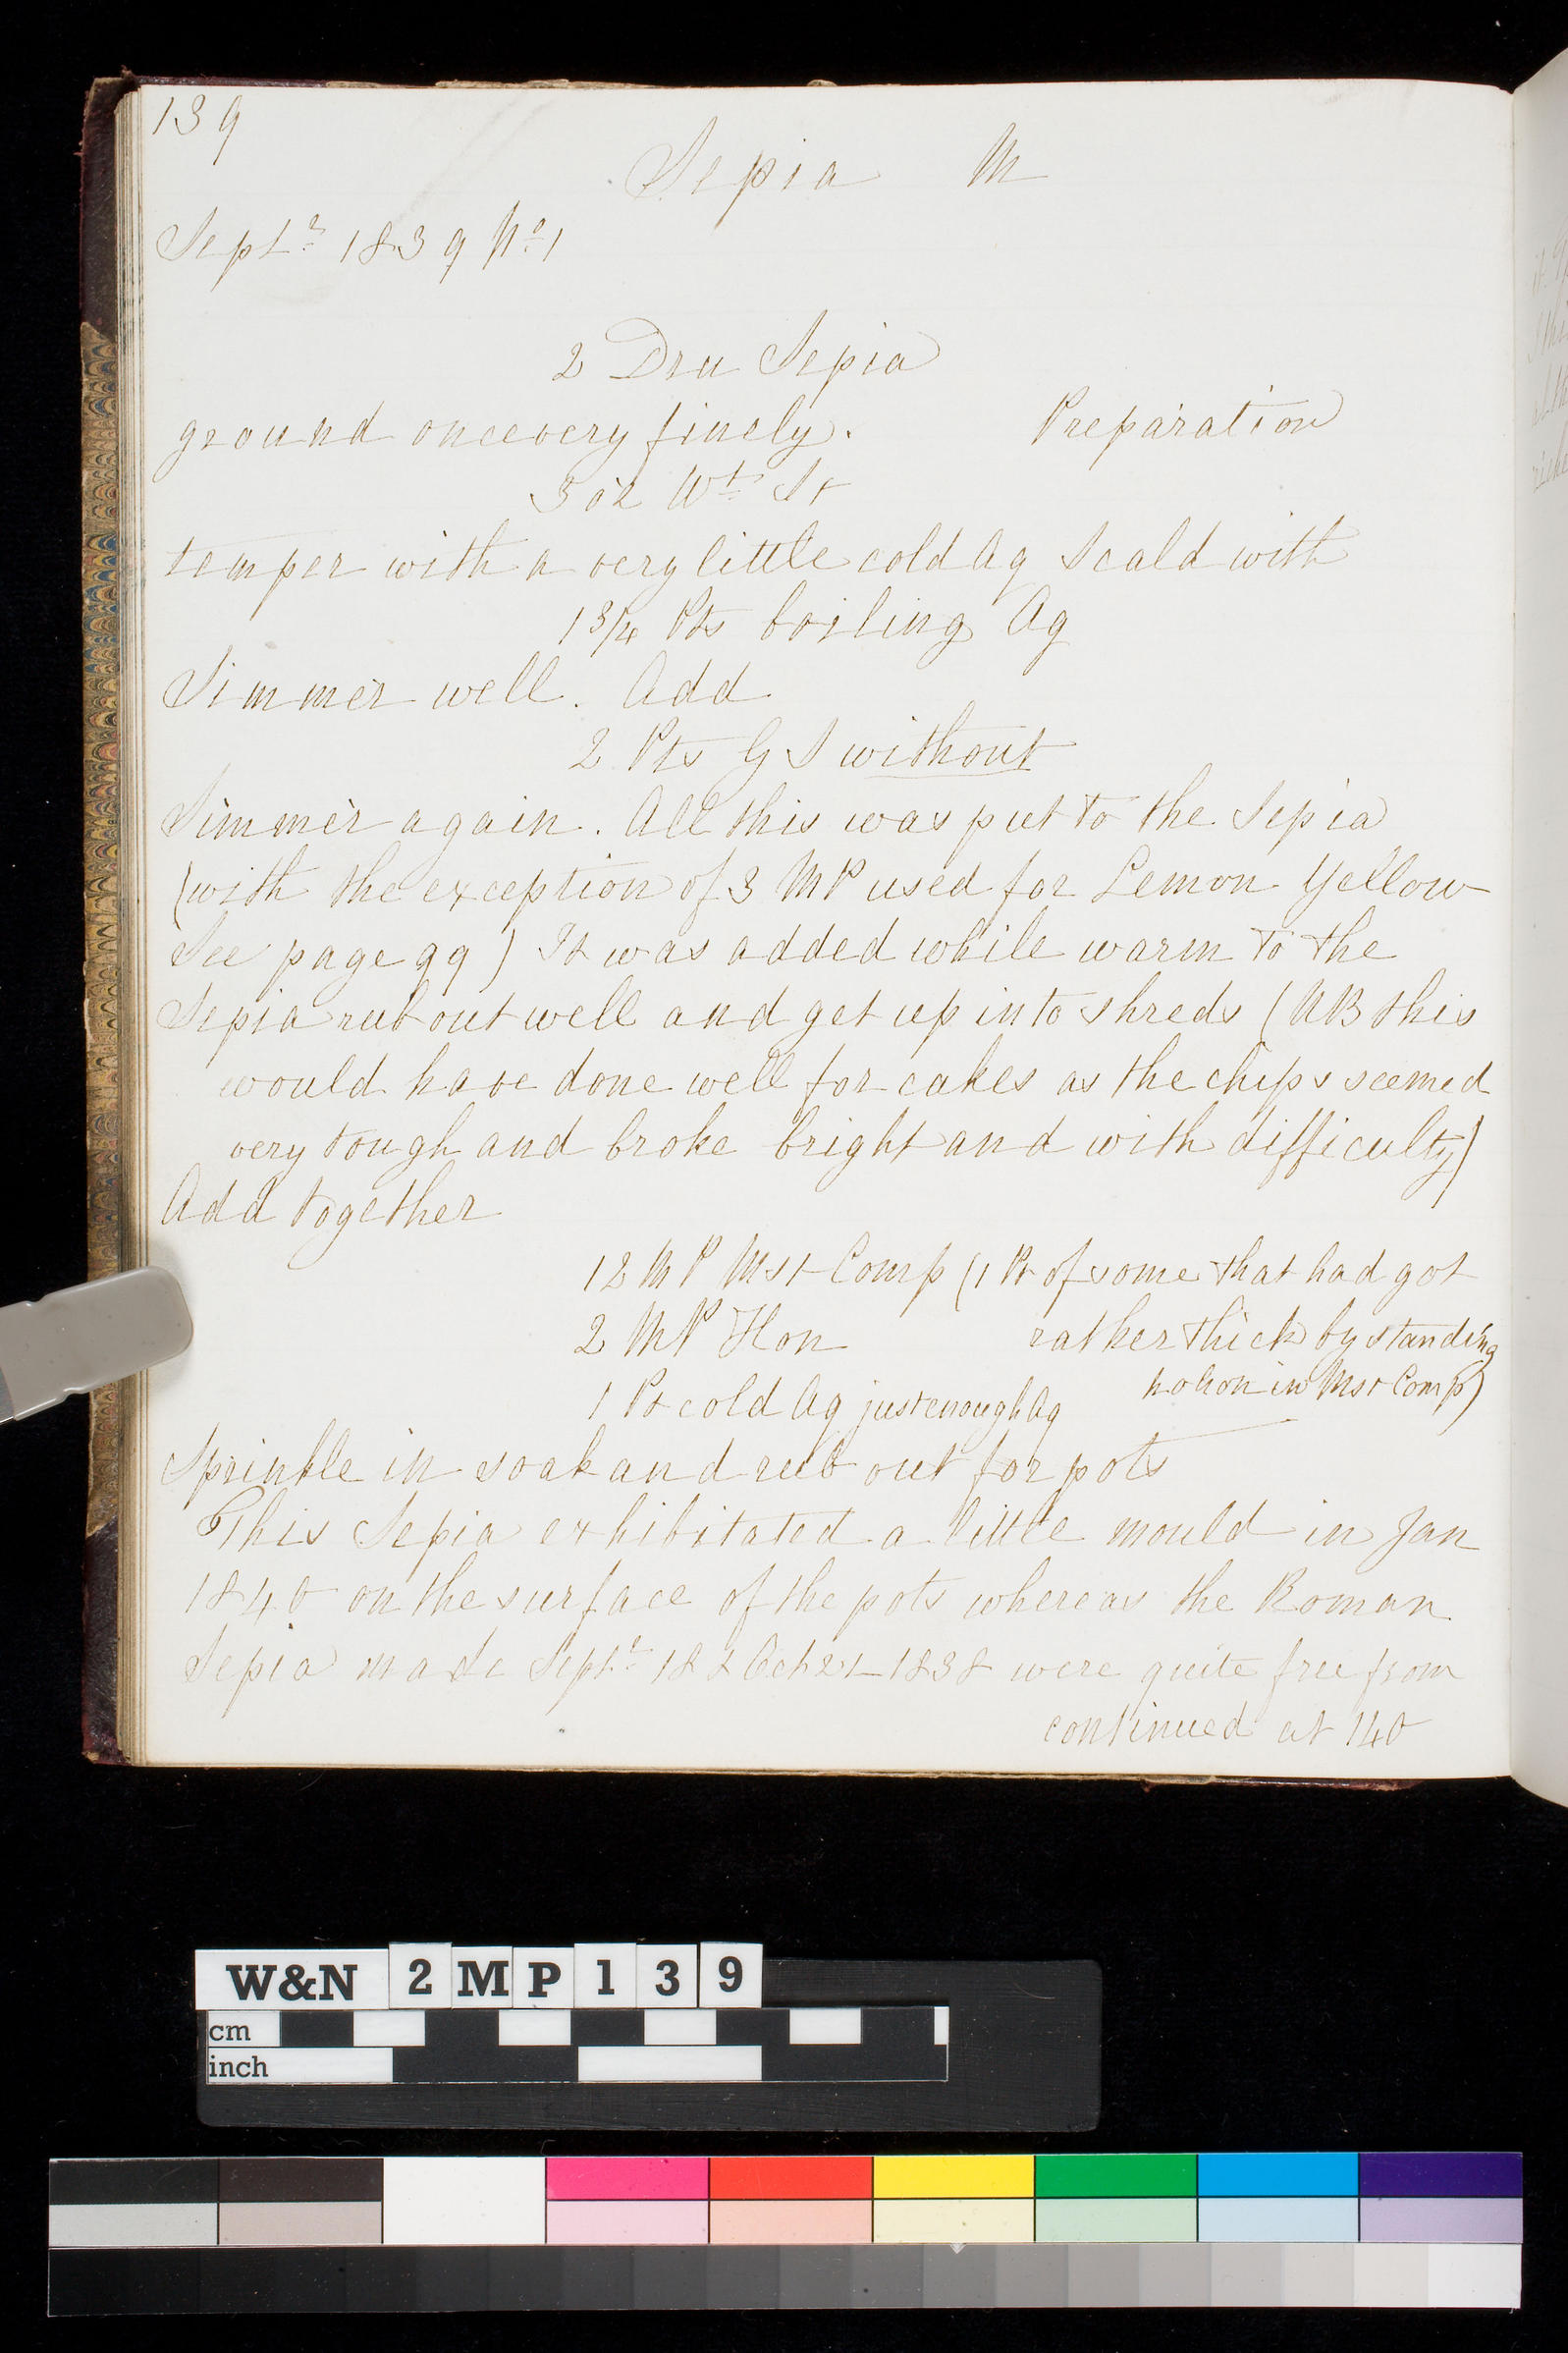 139
Sepia M
Septr 1839 No 1
2 Dru Sepia
ground once very finely. Preparation
3 oz Wt St
temper with a very little cold Aq Scald with
1 3/4 Pts boiling Aq
Simmer well. Add
2 Pts G S without
Simmer again. All this was put to the Sepia
(with the exception of 3 MP used for Lemon Yellow
See page 99) It was added while warm to the
Sepia rub out well and get up into shreds (NB this
would have done well for cakes as the chips seemed
very tough and broke bright and with difficulty)
Add together
12 MP Mst Comp (1 Pt of some that had got
2 MP Hon rather thick by standing
no hon in Mst Comp)
1 Pt cold Aq just enough Aq
Sprinkle in soak and rub out for pots
This Sepia exhibitated a little mould in Jan
1840 on the surface of the pots whereas the Roman
Sepia made Septr 18 & Oct 21 1838 were quite free from
continued at 140
W&N 2MP139
cm
inch